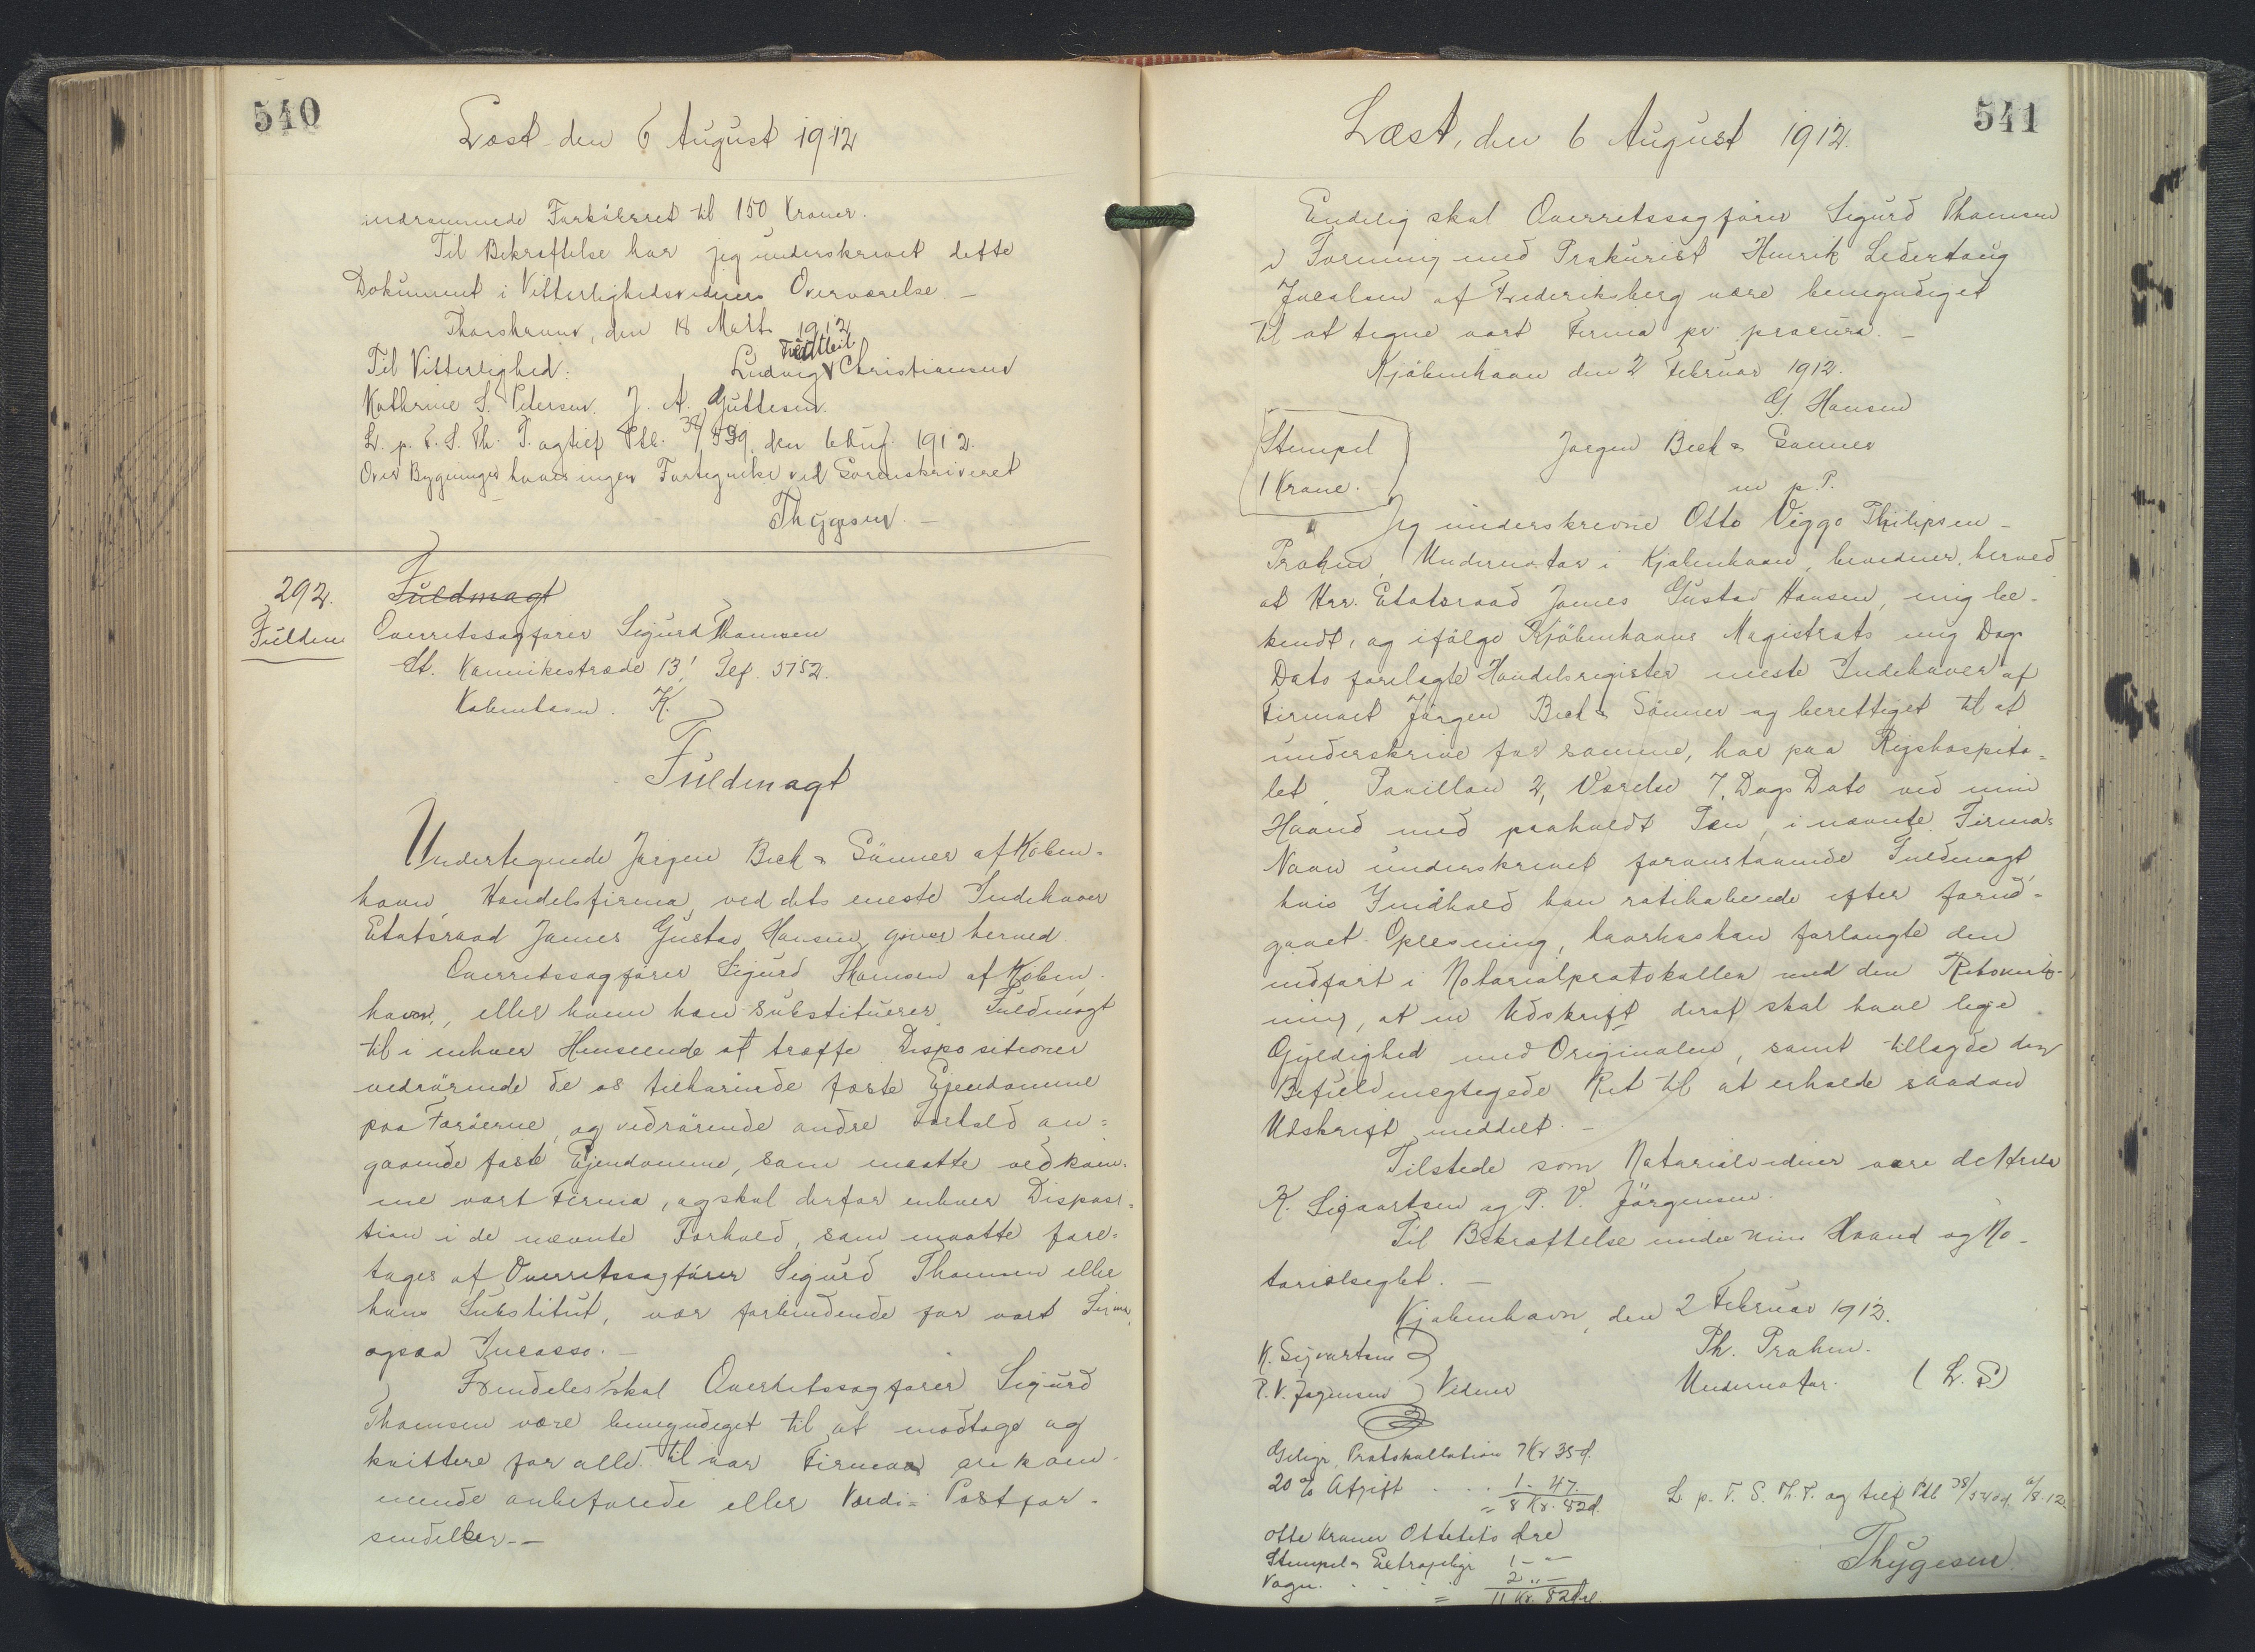 540
Læst den 6 August 1912
indrømmede Forkøbsret til 150 Kroner.
Til Bekræftelse har jeg underskrevet dette
Dokument i Vitterlighedsvidners Overværelse. —
Thorshavn, den 18 Marts 1912
Til Vitterlighed: Ludvig Christiansen
Kathrine S. Petersen. J. A. Guttesen.
L. p. F. S. Th. T. og tilf Ptl. 38/539, den 6 Aug. 1912.
Over Bygninger haves ingen Fortegnelse ved Sorenskriveriet
Thygesen. —
292. Fuldmagt
Fuldm. Overretssagfører Sigurd Thomsen
St. Kannikestræde 13! Telf. 5752.
København. K.
Fuldmagt
Undertegnede Jørgen Bech & Sønner af Køben-
havn Handelsfirma, ved dets eneste Indehaver
Etatsraad James Gustav Hansen, giver herved
Overretssagfører Sigurd Thomsen af Køben-
havn, eller hvem han substituerer, Fuldmagt
til i enhver Henseende at træffe Dispositioner
vedrørende de os tilhørende faste Ejendomme
paa Færøerne, og vedrørende andre Forhold an=
gaaende faste Ejendomme, som maatte vedkom-
me vort Firma, og skal derfor enhver Disposi=
tion i de nævnte Forhold, som maatte fore=
tages af Overretssagfører Sigurd Thomsen eller
hans Substitut, vær forbindende for vort Firma,
ogsaa Incasso. —
Fremdeles skal Overretssagfører Sigurd
Thomsen være bemyndiget til at modtage og
kvittere for alle til vor Firmaa ankom-
mende anbefalede eller Værdi= Postfor-
sendelser. —
541
Læst, den 6 August 1912.
Endelig skal Overretssagfører Sigurd Thomsen
i Forening med Prokurist Henrik Ledertoug
Jacobsen af Frederiksberg være bemyndiget
til at tegne vort Firma pr. procura. —
Kjøbenhavn den 2 Februar 1912.
G. Hansen
Stempel Jørgen Bech & Sønner
1 Krone. m p. P.
Jeg underskrevne Otto Viggo Philipsen —
Prahm, Undernotar i Kjøbenhavn, bevidner herved
at Hrr. Etatsraad James Gustav Hansen, mig be-
kendt, og ifølge Kjøbenhavns Magistrats mig Dags
Dato forelagte Handelsregister eneste Indehaver af
Firmaet Jørgen Bech & Sønner og berettiget til at
underskrive for samme, har paa Rigshospita=
let, Pavillon 2, Værelse 7, Dags Dato ved min
Haand med paaholdt Pen, i nævnte Firmas
Navn underskrevet foranstaaende Fuldmagt,
hvis Indhold han ratihaberede efter forud-
gaaet Oplæsning, hvorhos han forlangte den
indført i Notarialprotokollen med den
ning, at en Udskrift deraf skal have lige
Gyldighed med Originalen, samt tillagde den
Befuldmægtigede Ret til at erholde saadan
Udskrift meddelt. —
Tilstede som Notarialvidner vare de Herrer
K. Sigvartsen og P. V. Jørgensen.
Til Bekræftelse under min Haand og No-
tarialseglet. —
Kjøbenhavn, den 2 Februar 1912.
K. Sigvartsen Ph. Prahm.
P. V. Jørgensen } Vidner Undernotar. (L. S)
Gebyr, Protokollation 7 Kr 35 d.
20 % Afgift . . . 1 - 47
= 8 Kr. 82 d. L. p. F. S. Th. T. og tilf Ptl 38/540-41, 6/8.12.
otte Kroner Ottetito Øre
Stempel & Extragebyr 1 - " —
Vogn. . . . . 2 " — Thygesen
= 11 Kr. 82 Øre.